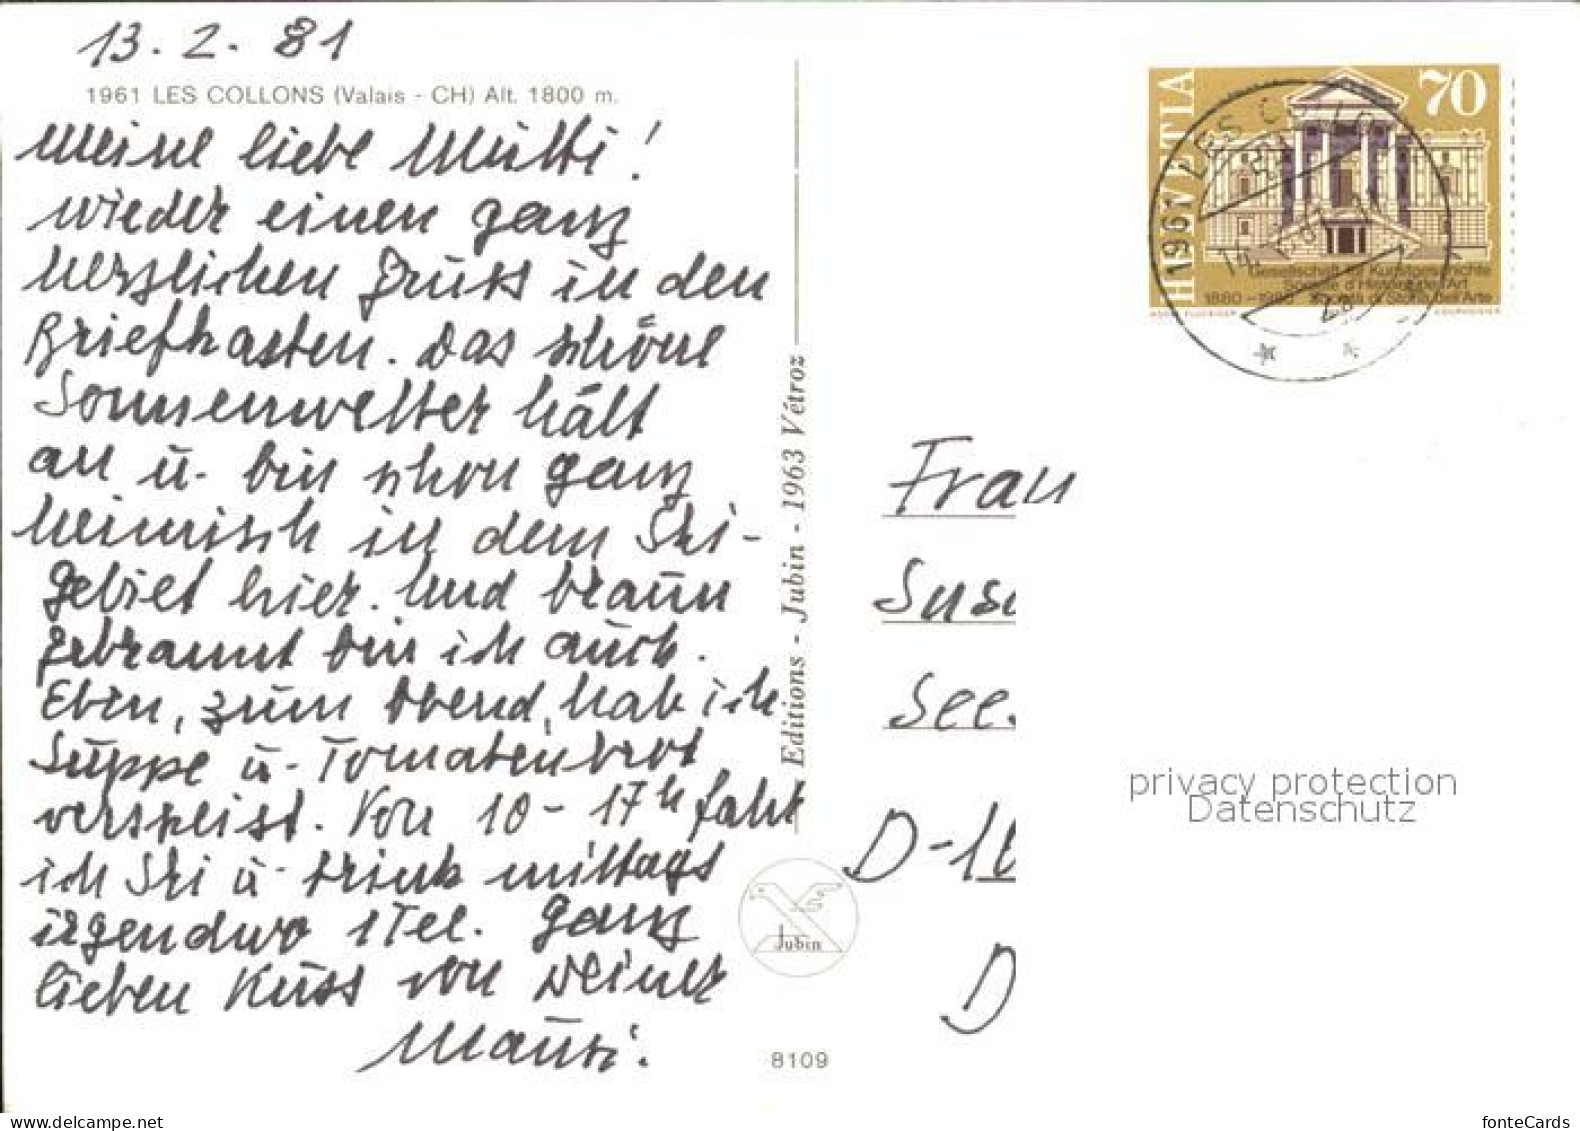 13. 2. 81
1961 LES COLLONS (Valais - CH) Alt. 1800 m.
Meine liebe Mutti!
wieder einen ganz
herzlichen Gruss in den
Briefkasten. Das schöne
Sonnenwetter hält
an u. bin schon ganz
heimisch in dem Ski-
gebiet hier. Und braun
gebrannt bin ich auch.
Eben, zum Abend, hab ich
Suppe u. Tomatenbrot
verspeist. Von 10 - 17 h fahr
ich Ski u. trink mittags
irgendwo 1 Tee. Ganz
lieben Kuss von Deiner
Mausi.
Editions - Jubin - 1963 Vétroz
Jubin
8109
HELVETIA
70
Gesellschaft für Kunstgeschichte
Société d'Histoire de l'Art
1880-1980 Società di Storia dell'Arte
COURVOISIER
1961 LES COLLONS
Frau
Susa
See
D-1
D
privacy protection
Datenschutz
www.delcampe.net
fonteCards